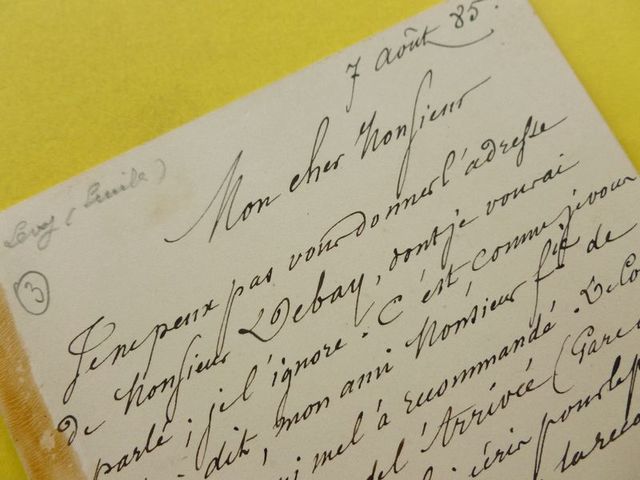 7 Août 85.
Mon cher Monsieur
Levy (Emile)
3
Je ne peux pas vous donner l'adresse
de Monsieur Debay, dont je vous ai
parlé ; je l'ignore. C'est, comme je vous
dit, mon ami Monsieur fix de
mel à recommandé. De
de l'Arrivée (Gare
écrir pour le